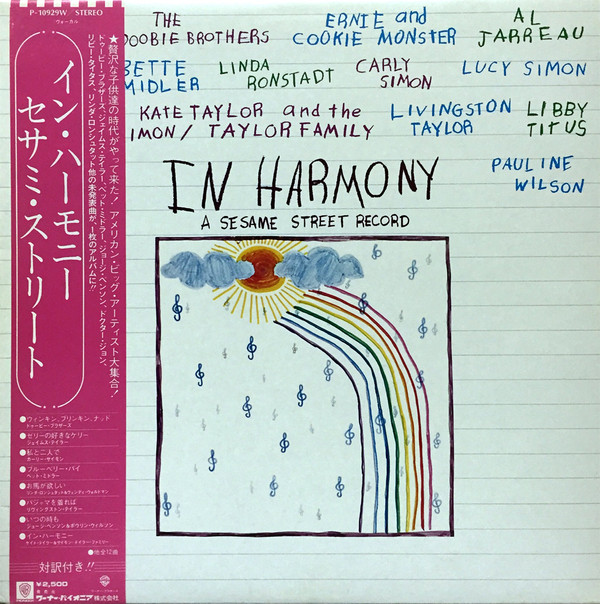 P-10929W STEREO
ヴォーカル
イン・ハーモニー
セサミ・ストリート
★贅沢な子供達の時代がやって来た！アメリカン・ビッグ・アーティスト大集合！
ドゥービー・ブラザーズ、ジェイムス・テイラー、ベット・ミドラー、ジョージ・ベンソン、ドクター・ジョン、
リビー・タイタス、リンダ・ロンシュタット他の未発表曲が、1枚のアルバムに!!
●ウィンキン、ブリンキン、ナッド
ドゥービー・ブラザーズ
●ゼリーの好きなケリー
ジェイムス・テイラー
●私と二人で
カーリー・サイモン
●ブルーベリー・パイ
ベット・ミドラー
●お馬が欲しい
リンダ・ロンシュタット&ウェンディ・ウォルドマン
●パジャマを着れば
リヴィングストン・テイラー
●いつの時も
ジョージ・ベンソン&ポウリン・ウィルソン
●イン・ハーモニー
ケイト・テイラー&サイモン・テイラー・ファミリー
●他全12曲
対訳付き!!
¥2,500
ワーナー・パイオニア株式会社
THE
DOOBIE BROTHERS
ERNIE and
COOKIE MONSTER
AL
JARREAU
BETTE
MIDLER
LINDA
RONSTADT
CARLY
SIMON
LUCY SIMON
KATE TAYLOR and the
IMON/TAYLOR FAMILY
LIVINGSTON
TAYLOR
LIBBY
TITUS
PAULINE
WILSON
IN HARMONY
A SESAME STREET RECORD